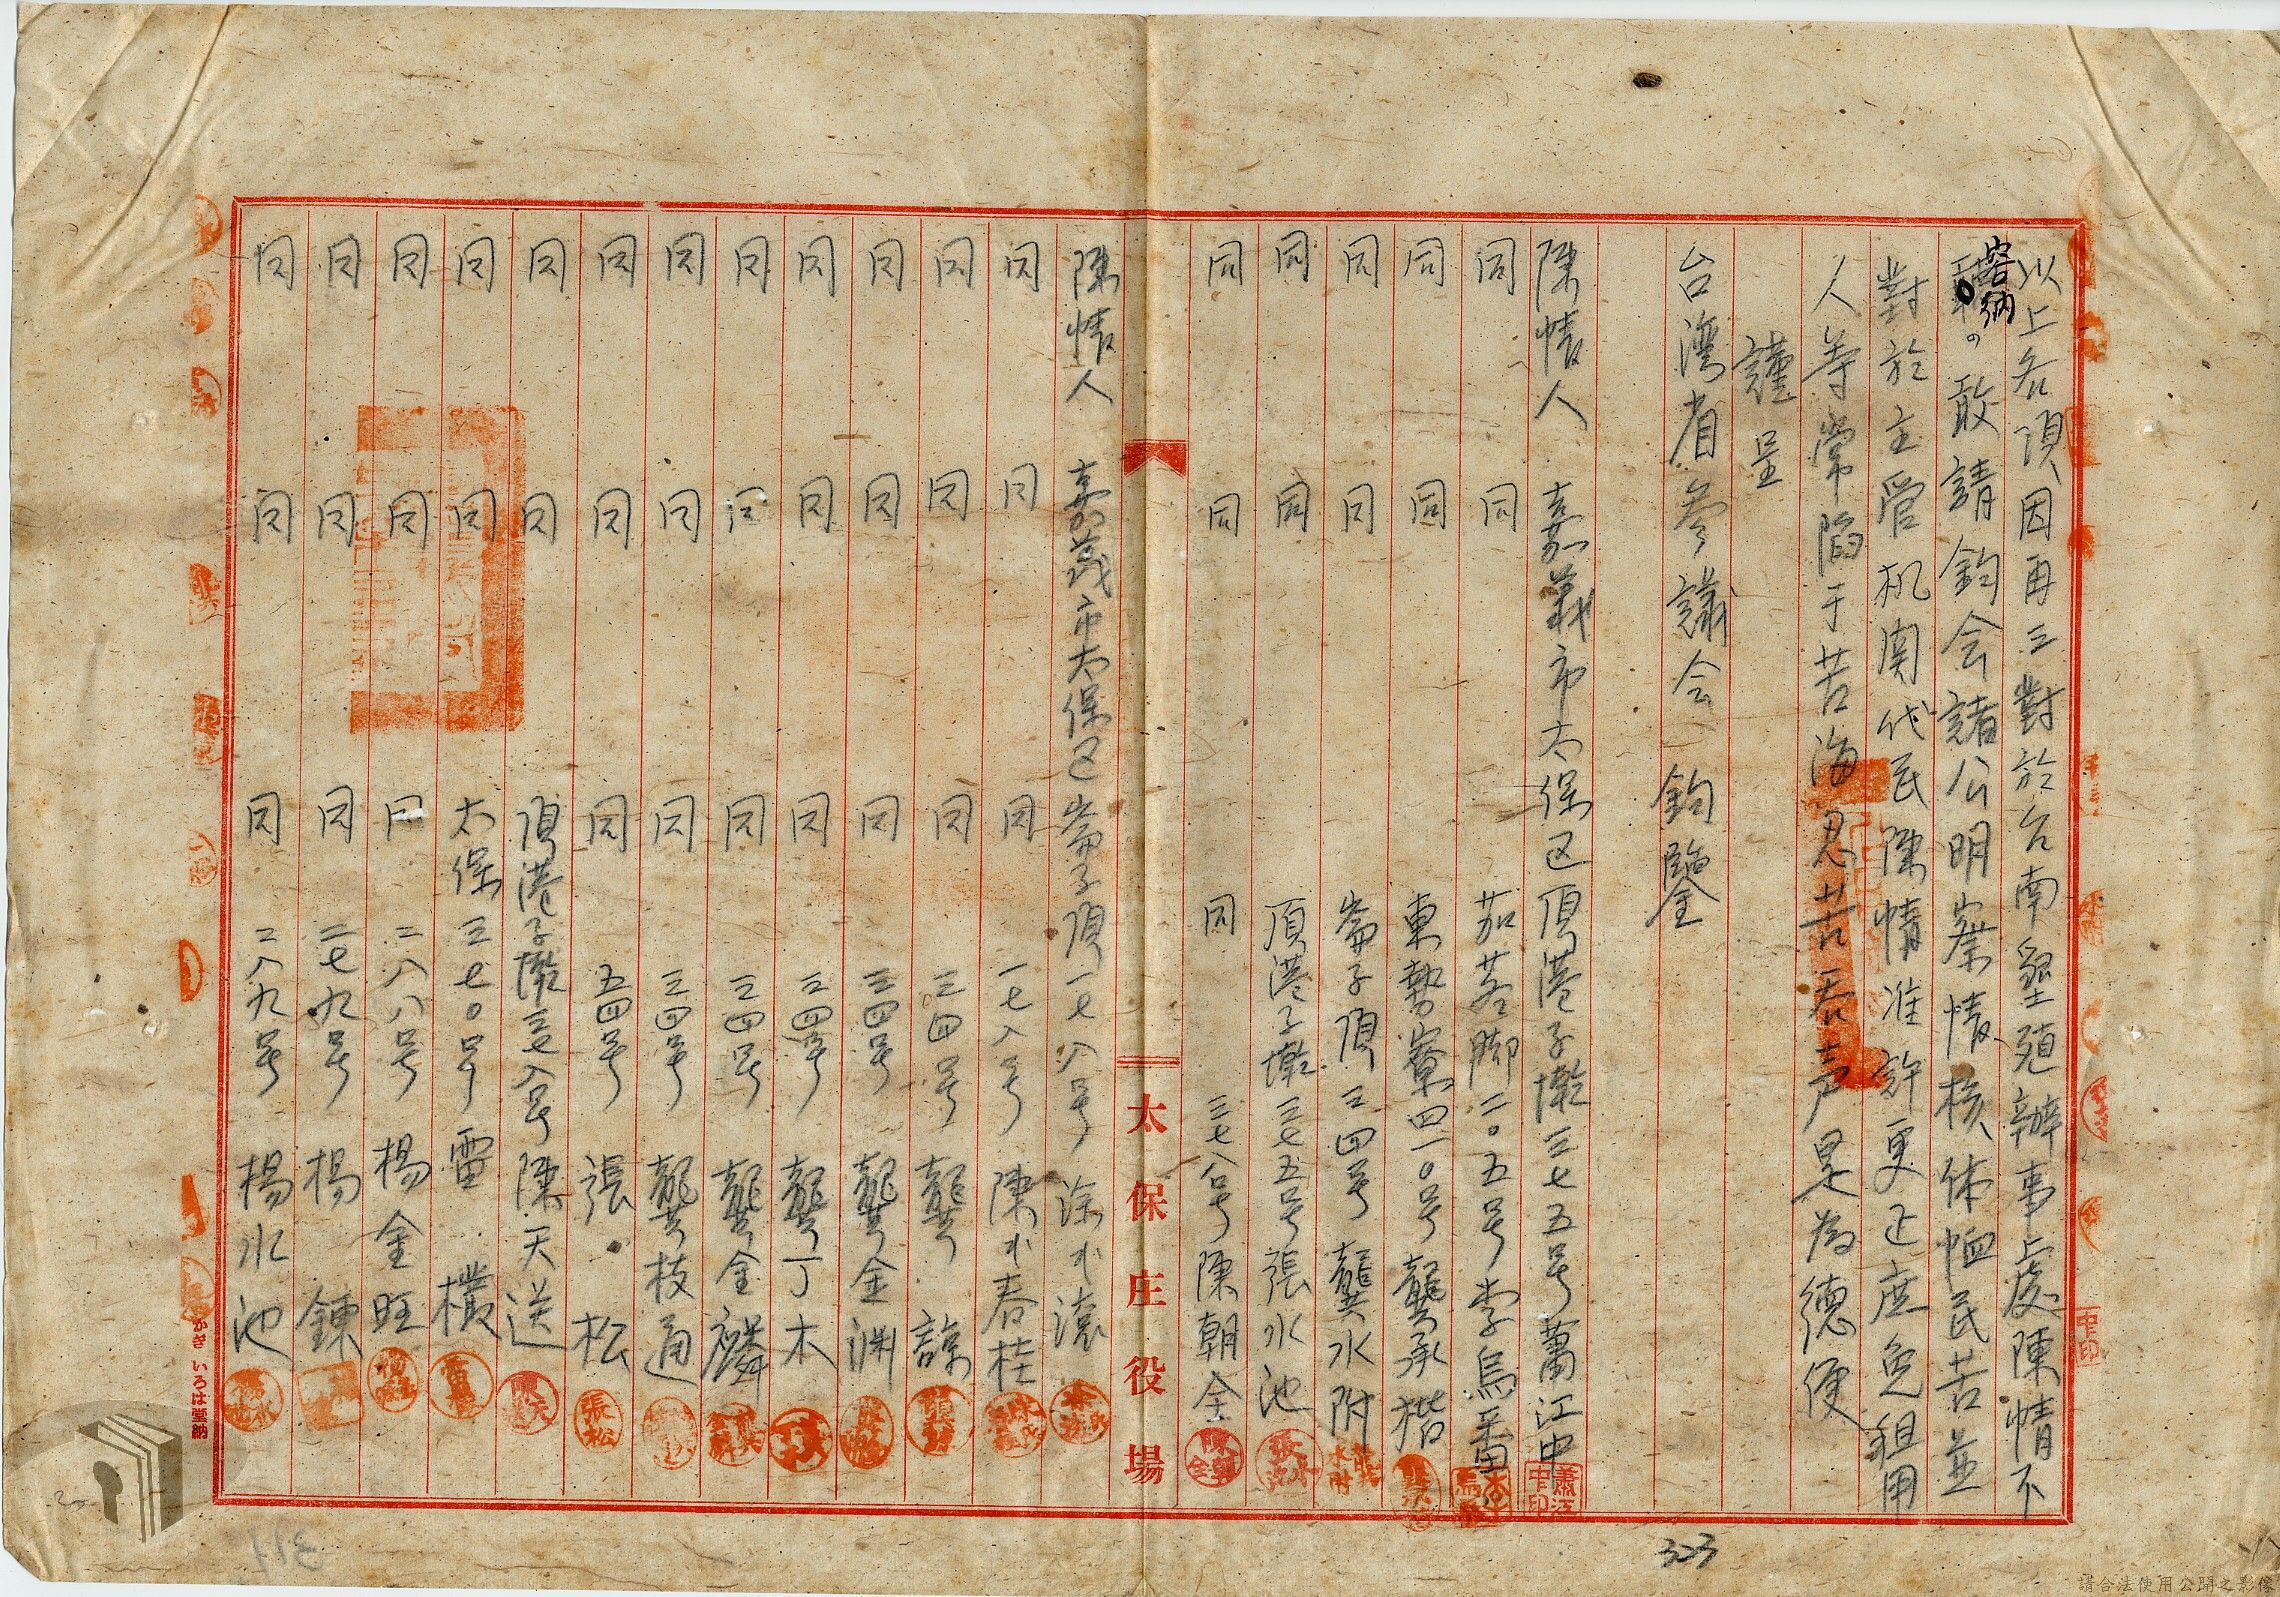 以上各項因再三對於台南墾殖辦事處陳情不
容納。敢請鈞会諸公明察情核体恤民苦並
對於主管机関代民陳情准許更正庶免租用
人等常陷于苦海忍苦吞声是為德便
謹呈
台湾省参議会 鈞鑒
陳情人 嘉義市太保区頂港子墘三七五号 蕭江中
同 同 茄苳脚二〇五号 李烏番
同 同 東勢寮四一〇号 龔承楷
同 同 崙子頂三四号 龔水附
同 同 頂港子墘三七五号 張水池
同 同 同 三七八号 陳朝全
太保庄役場
陳情人 嘉義市太保区崙子頂一七八号 涂水濱
同 同 同 一七八号 陳水春桂
同 同 同 三四号 龔諒
同 同 同 三四号 龔金淵
同 同 同 三四号 龔丁木
同 同 同 三四号 龔金麟
同 同 同 三四号 龔枝通
同 同 同 五四号 張松
同 同 頂港子墘三七八号 陳天送
同 同 太保三七〇号 雷欉
同 同 同 二八八号 楊金旺
同 同 同 二七九号 楊錬
同 同 同 二八九号 楊水池
いろは堂納
323
311
請合法使用公開之影像